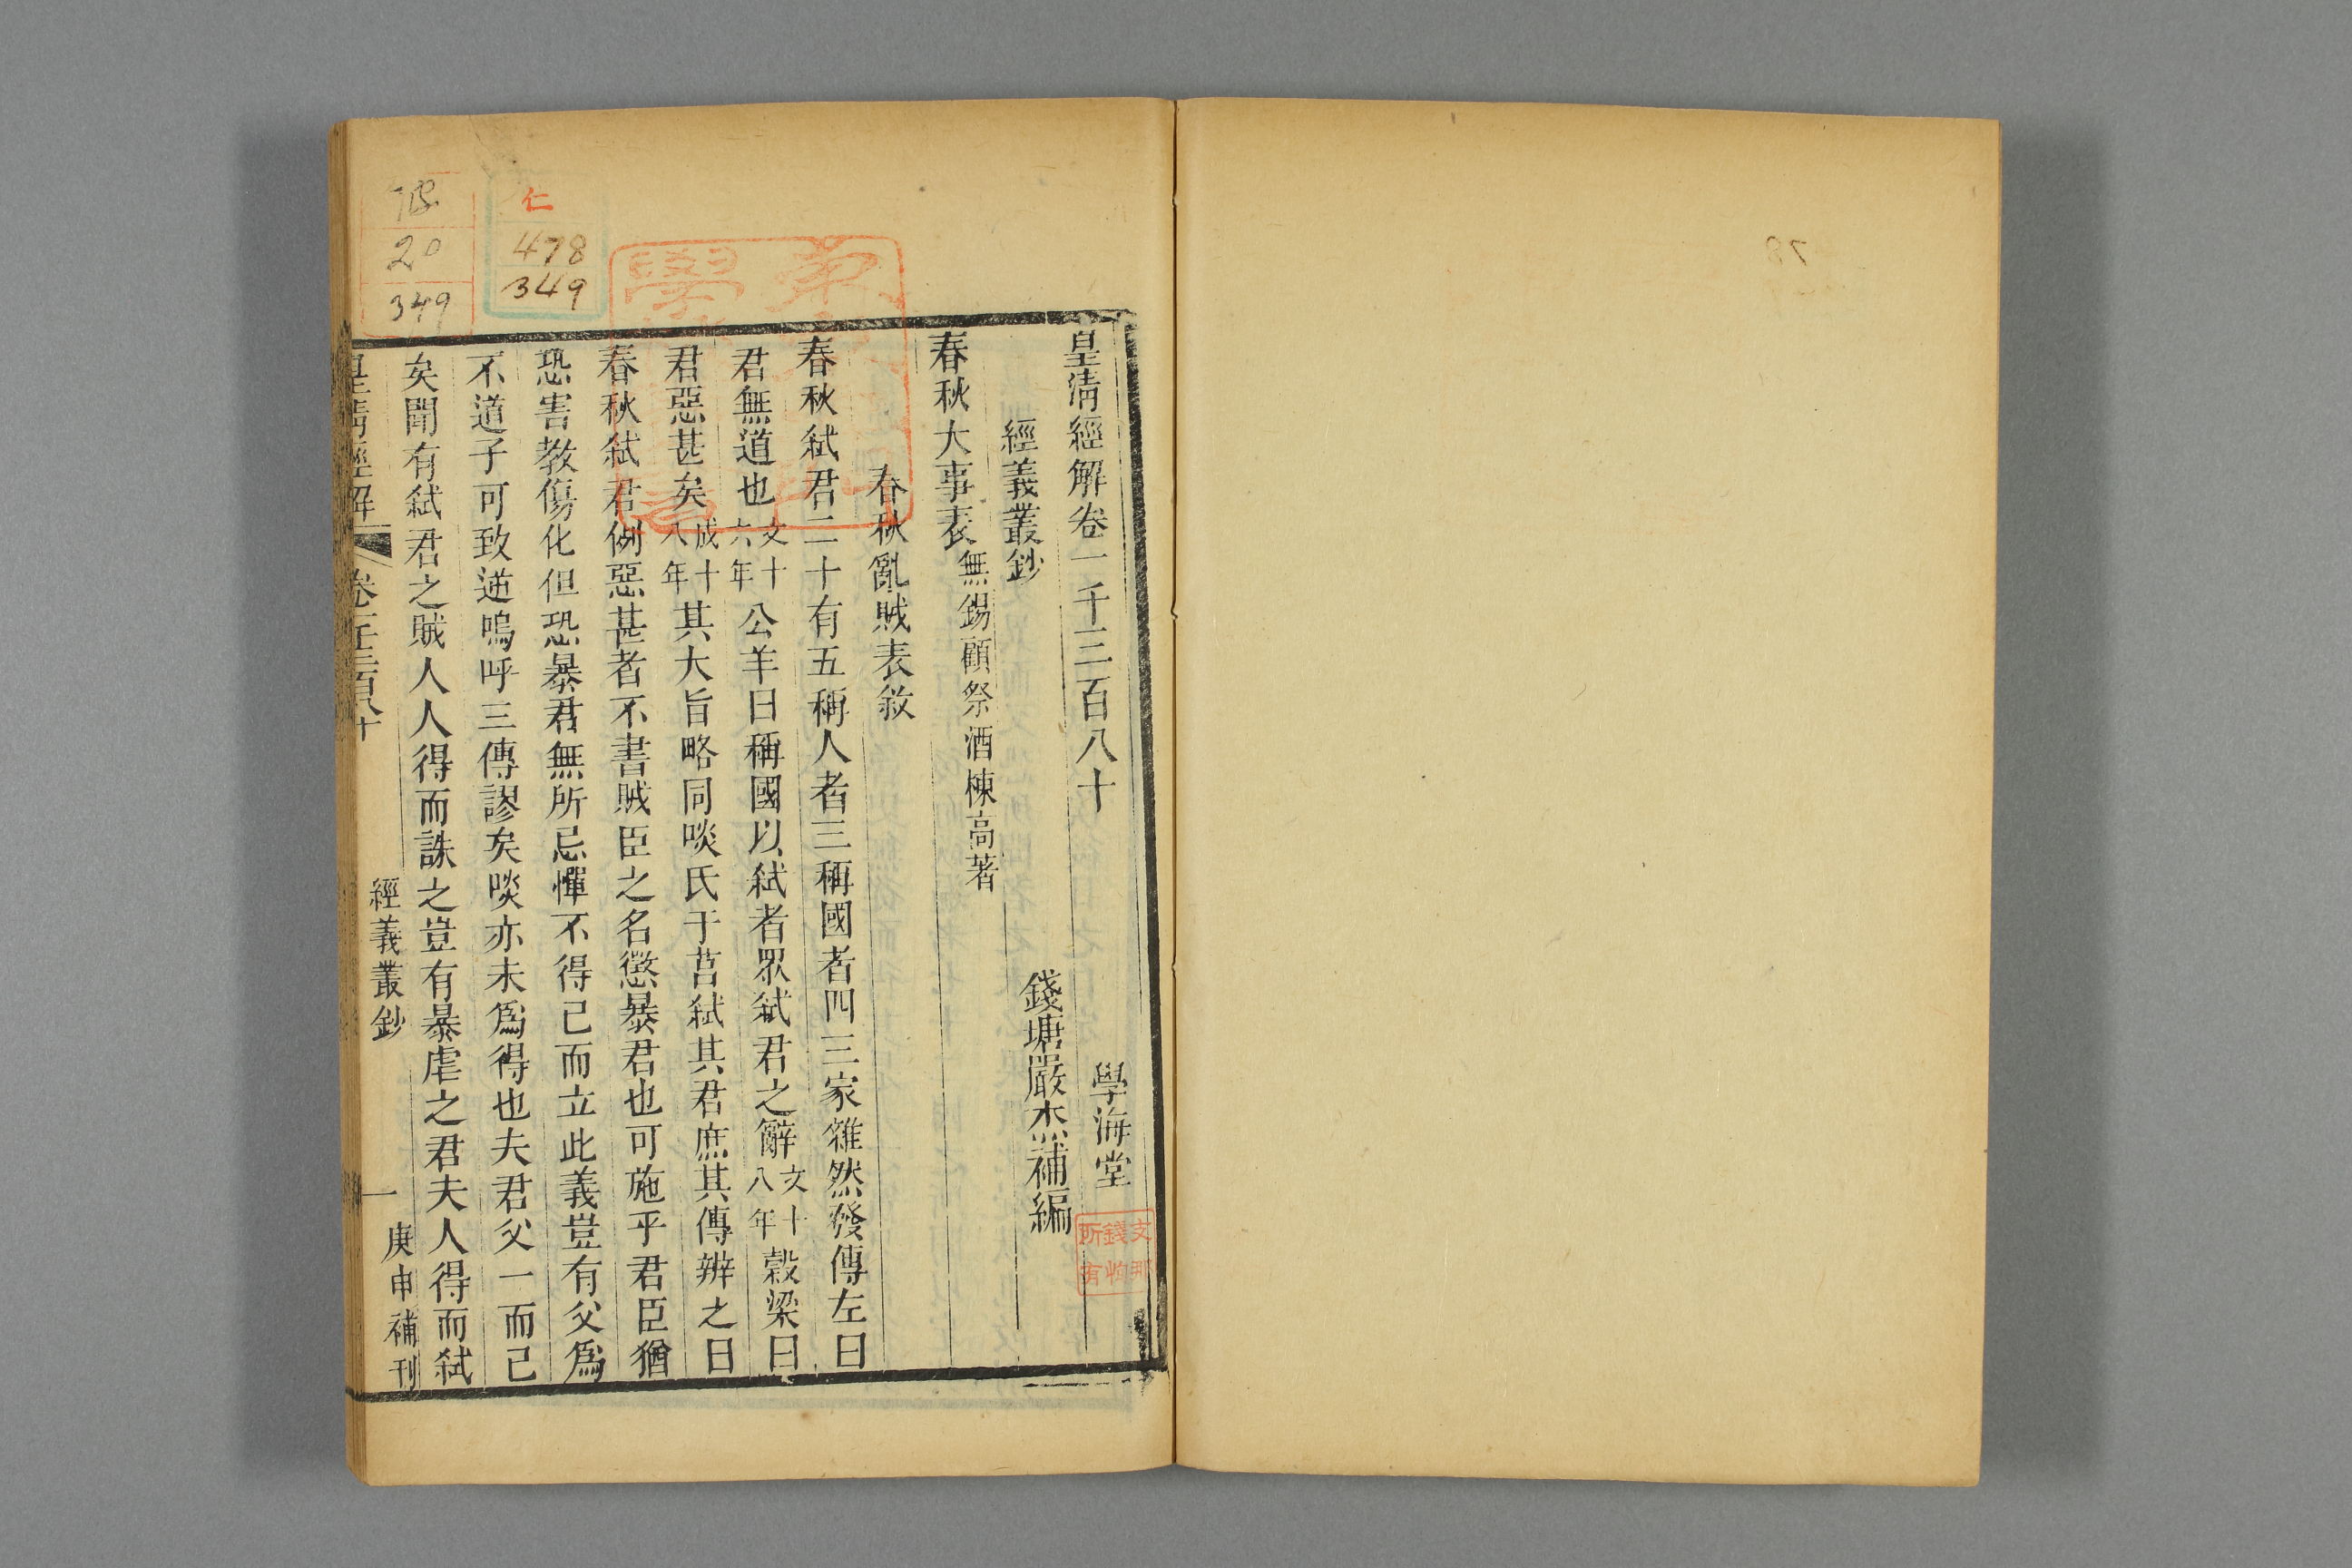 皇清經解卷一千三百八十 學海堂
經義叢鈔 錢塘嚴杰補編
春秋大事表 無錫顧祭酒棟高著
春秋亂賊表敘
春秋弒君二十有五稱人者三稱國者四三家雜然發傳左曰
君無道也文十六年公羊曰稱國以弒者眾弒君之辭文十八年穀梁曰
君惡甚矣成十八年其大旨略同啖氏于莒弒其君庶其傳辨之曰
春秋弒君例惡甚者不書賊臣之名懲暴君也可施乎君臣猶
恐害教傷化但恐暴君無所忌憚不得已而立此義豈有父為
不道子可致逆嗚呼三傳謬矣啖亦未為得也夫君父一而已
矣聞有弒君之賊人人得而誅之豈有暴虐之君夫人得而弒
皇清經解 卷一千三百八十 經義叢鈔 一 庚申補刊
仁
478
349
20
349
支那
錢恂
所有
78